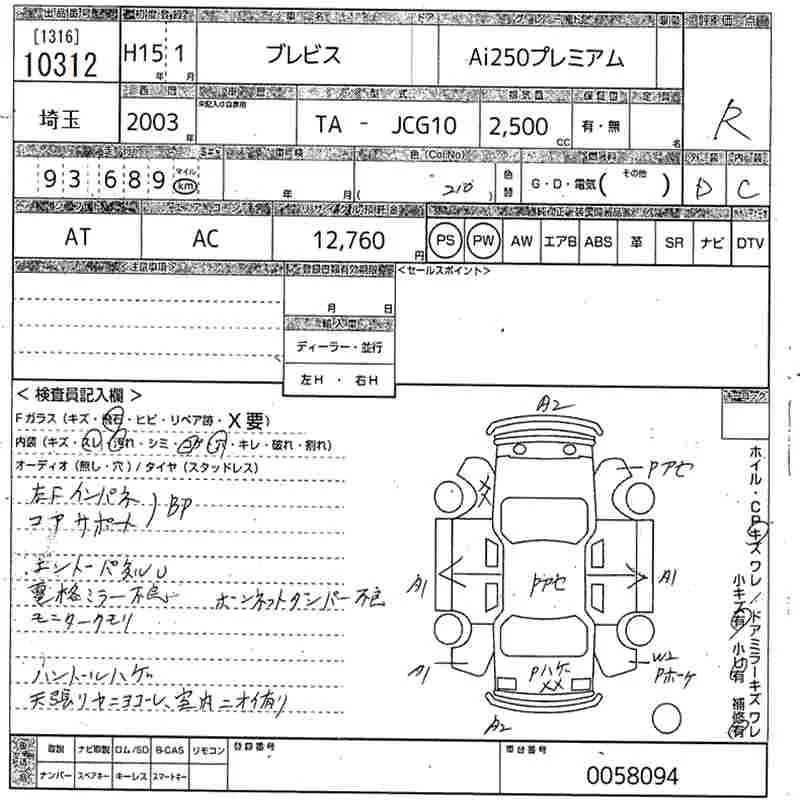 出品番号 初度登録 車名 ドア グレード 評価点
[1316]
10312 H15年 1月 ブレビス Ai250プレミアム R
埼玉 2003年 TA - JCG10 2,500CC 有・無 名
型式 排気量
93,689 マイル km 年 月 色(Col No) ( 210 ) 色替 G・D・電気( その他 ) 外装 D 内装 C
AT AC 12,760円 PS PW AW エアB ABS 革 SR ナビ DTV
<注意事項> 登録書類有効期限 <セールスポイント>
月 日
輸入車
ディーラー・並行
左H ・ 右H
<検査員記入欄>
Fガラス(キズ・飛石・ヒビ・リペア跡・X要)
内装(キズ・スレ・汚れ・シミ・コゲ・穴・キレ・破れ・割れ)
オーディオ(無し・穴)/タイヤ(スタッドレス)
左Fインパネ
コアサポート ) BP
電格ミラー不良 ボンネットダンパー不良
モニタークモリ
ハンドルハゲ
天張リヤニヨゴレ、室内ニオイ有り
A2
Pアセ
XX
A1 PアセA1
A1 Pハゲ XX W2 Pボケ
A2
ホイル・CPキズ ワレ/ドアミラーキズ ワレ
小キズ有/小凹有 補修有
取説 ナビ取説 ロム/SD B-CAS リモコン 登録番号 車台番号
ナンバー スペアキー キーレス スマートキー 0058094